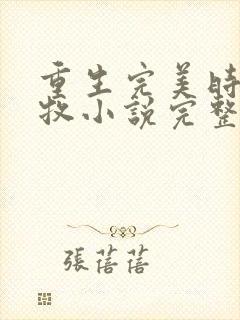 重生完美時
牧小說完整
張蓓蓓